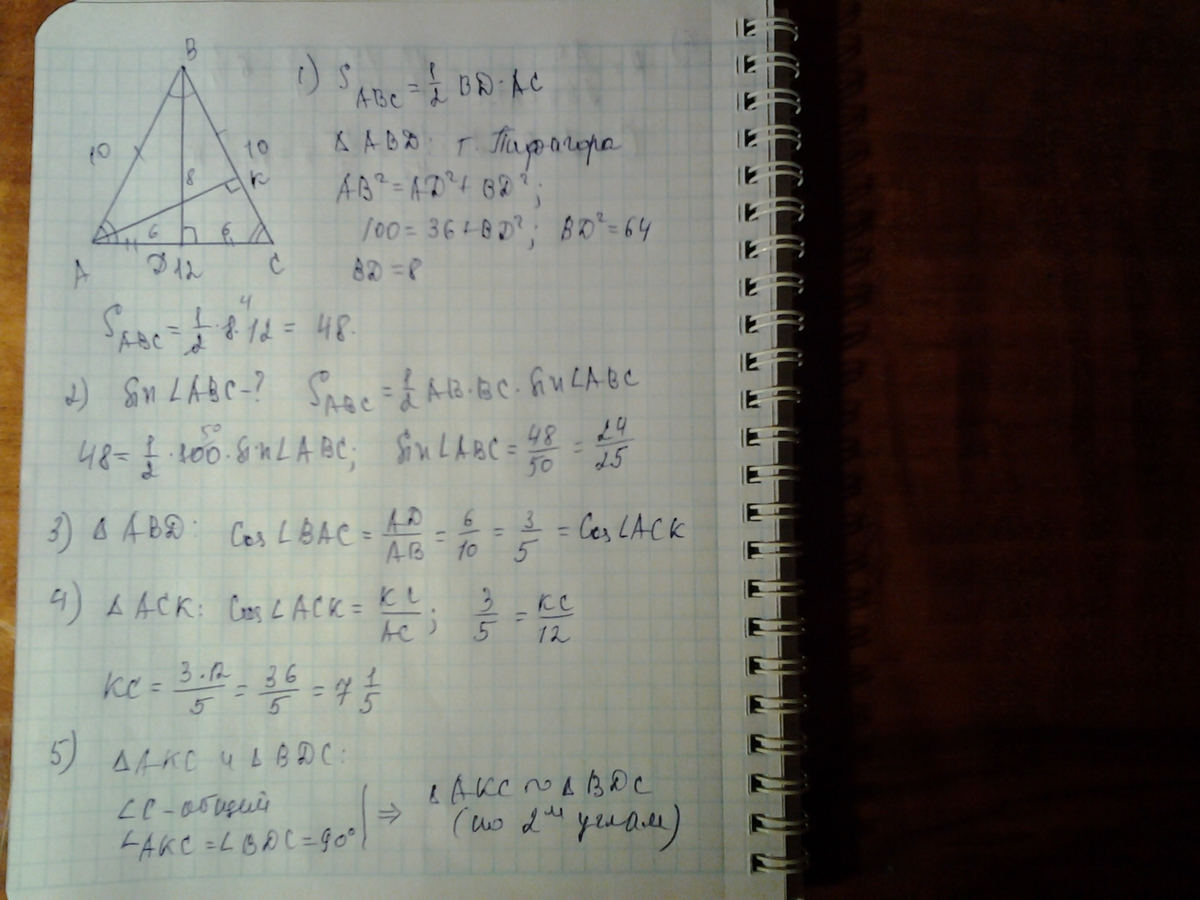 B
10
10
8
K
6
6
A
D
12
C
1) S_ABC = 1/2 BD · AC
Δ ABD: т. Пифагора
AB² = AD² + BD²;
100 = 36 + BD²; BD² = 64
BD = 8
S_ABC = 1/2 · 8 4 · 12 = 48.
2) Sin ∠ABC - ? S_ABC = 1/2 AB · BC · Sin ∠ABC
48 = 1/2 · 100 50 · Sin ∠ABC; Sin ∠ABC = 48/50 = 24/25
3) Δ ABD: Cos ∠BAC = AD/AB = 6/10 = 3/5 = Cos ∠ACK
4) Δ ACK: Cos ∠ACK = KC/AC; 3/5 = KC/12
KC = 3·12/5 = 36/5 = 7 1/5
5) Δ AKC и Δ BDC:
∠C - общий
∠AKC = ∠BDC = 90° ⇒ Δ AKC ~ Δ BDC
(по 2м углам)